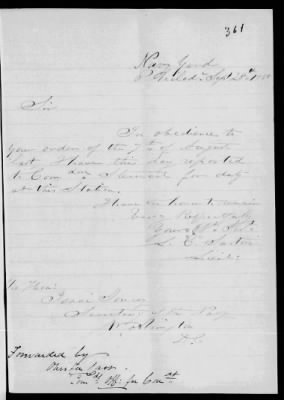 361
Navy Yard
Philada Sept 28th
Sir
In obedience to
your orders of the 7th of August
last I have this day reported
to Com dore Stewart for duty
at this Station.
I have the honor to remain
Very Respectfully
Your Obt Svt
L. C. Sartori
Lieut:
To Hon:
Isaac Toucey
Secretary of the Navy
Washington
D.C.
Forwarded by
for Com dt